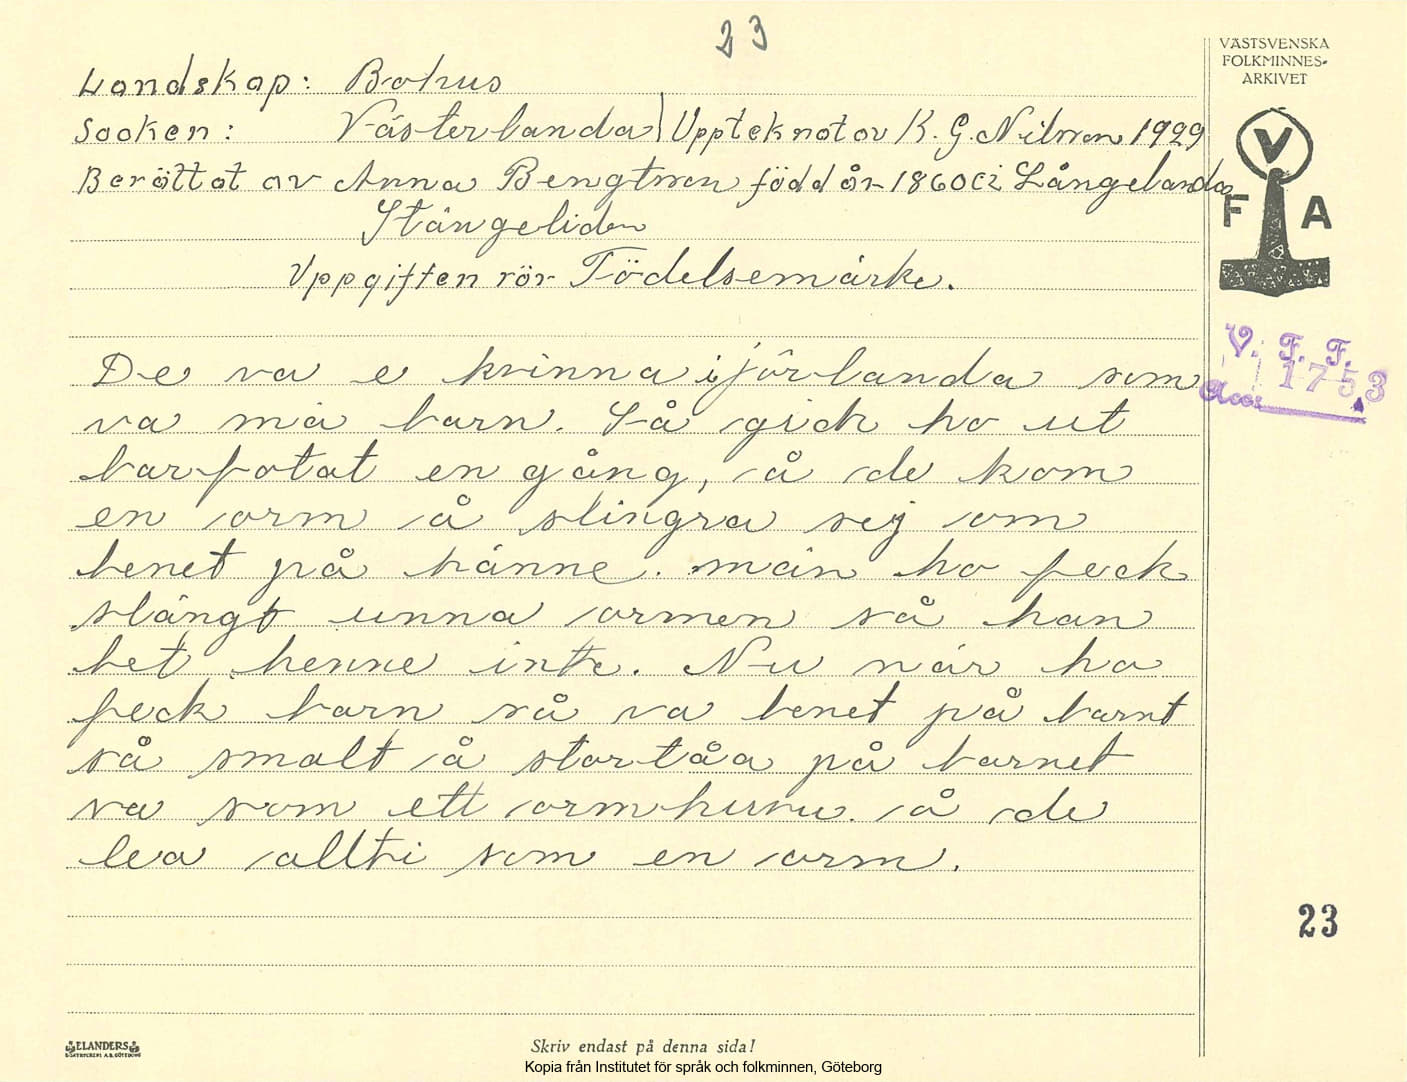 23
VÄSTSVENSKA
FOLKMINNES-
ARKIVET
Landskap: Bohus
Socken: Västerlanda Upptecknat av K. G. Nilsson 1929
Berättat av Anna Bengtsson född år 1860 i Långelanda
Stängeliden
Uppgiften rör Födelsemärke.
V
F A
V. F. F.
1753
Acc:
De va e kvinna i jörlanda som
va mä barn. Så gick ho ut
barfotat en gång, å de kom
en orm å slingra sej om
benet på hänne. män ho feck
slängt unna ormen så han
bet henne inte. Nu när ho
feck barn så va benet på barnt
så smalt å stortåa på barnet
va som ett ormhuvu. å de
lea allti som en orm.
23
ELANDERS
BOKTRYCKERI A.B. GÖTEBORG
Skriv endast på denna sida!
Kopia från Institutet för språk och folkminnen, Göteborg